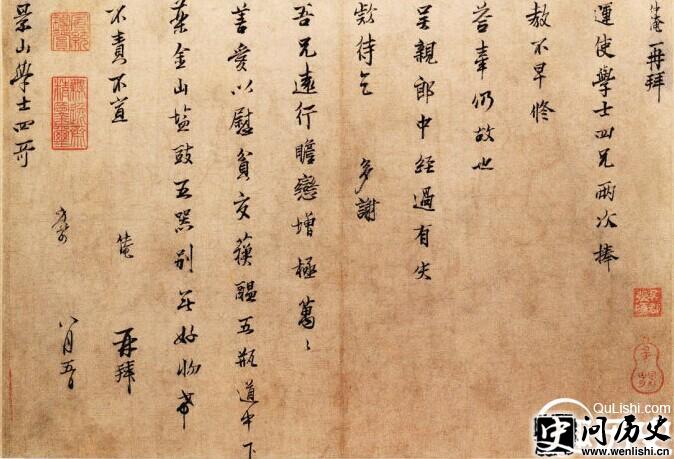 仲淹再拜
運使學士四兄兩次捧
教不早修
荅奉仍故也
吳親郎中經過有失
欵待乞 多謝
吾兄遠行瞻戀增極萬〻
善愛以慰貧交蘓醖五瓶道中下
藥金山盐豉五器别無好物希
不責不宣 淹 再拜
八月五日
景山學士四哥
QuLishi.com
问历史
www.wenlishi.cn